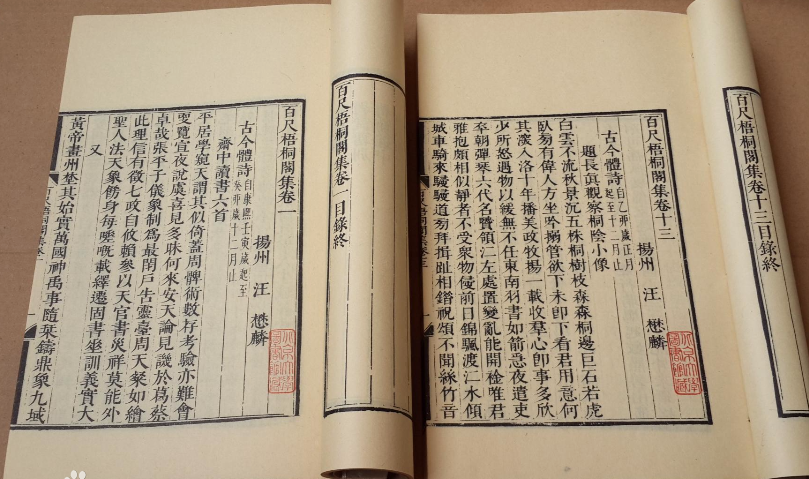 百尺梧桐閣集卷一目錄終
百尺梧桐閣集卷一
揚州 汪 懋麟
古今體詩 自康熙壬寅歲起至癸卯歲十二月止
齋中讀書六首
平居學窺天謂其似倚蓋周髀術數存考驗亦難會
要覽宣夜說虞喜見多昧何來安天論見譏於葛蔡
卓哉張平子儀象制為最閉戶告靈臺周天粲如繪
此理信有徵七政自攸賴參以天官書災祥莫能外
聖人法天象飭身每嘅載繹遷固書訓義實大
又
黃帝畫州埜其始實萬國神禹事隨栞鑄鼎象九域
百尺梧桐閣集卷十三目錄終
百尺梧桐閣集卷十三
揚州 汪 懋麟
古今體詩 自乙卯歲正月起至十二月止
題長眞觀察桐陰小像
白雲不流秋景沉五株桐樹枝森森桐邊巨石若虎
臥旁有偉人方坐吟搦管欲下未卽下看君用意何
其深入洛十年播美政牧揚一載收羣心卽事多欣
少所怒遇物以緩無不任東南羽書如箭急夜遣吏
卒朝彈琴六代名賢領江左處置變亂能開襟唯君
雅抱頗相似靜者不受衆物侵前日錦颿渡江水傾
城車騎來駸駸道旁拜揖趾相錯祝頌不聞絲竹音